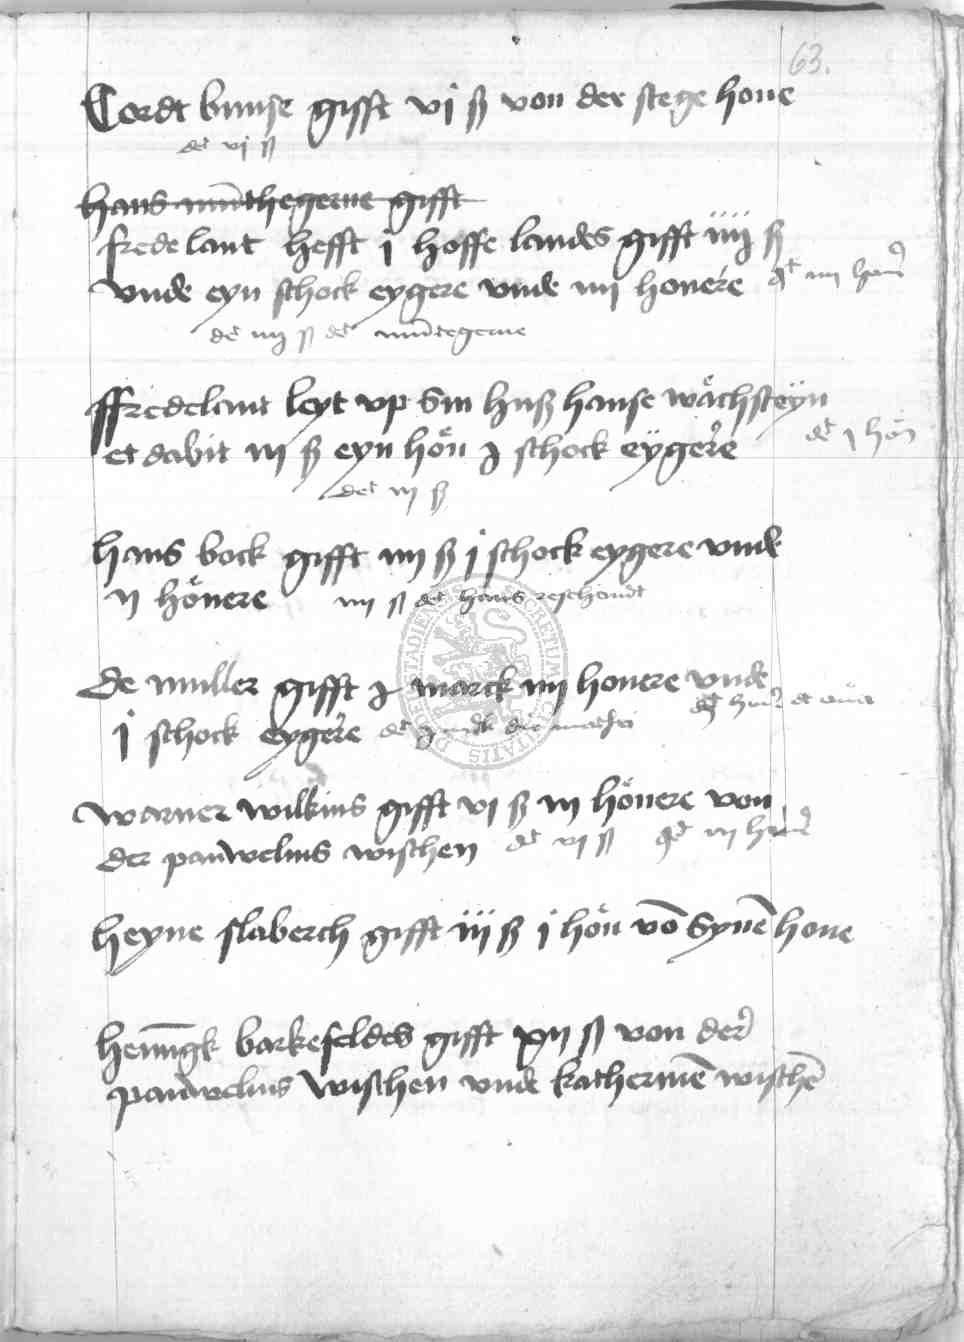 63.
Cordt bunse gifft vj ß von der stege houe
dt vj ß
hans mūthegerne gifft
frede lant hefft j hoffe landes gifft iiij ß
vnde eyn schock eygere vnde iiij honere dt iiij
dt iiij ß dt mūtegerne
ffredelant leyt vp Sin huß hanse wächsteyn
et dabit iij ß eyn hön j schock eygere dt j hön
det iij ß
hans bock gifft iiij ß j schock eygere vnde
ij hönere iiij ß dt hans
de muller gifft j marck iiij honere vnde
j schock eygere dt
warner wilkins gifft vj ß iij hönere von
der pauwelins wischen dt vj ß dt iij
heyne slaberch gifft iij ß j hön vō Synē houe
hennīgk barkefeldes gifft xij ß von der
pauwelins wischen vnde katherinē wischē